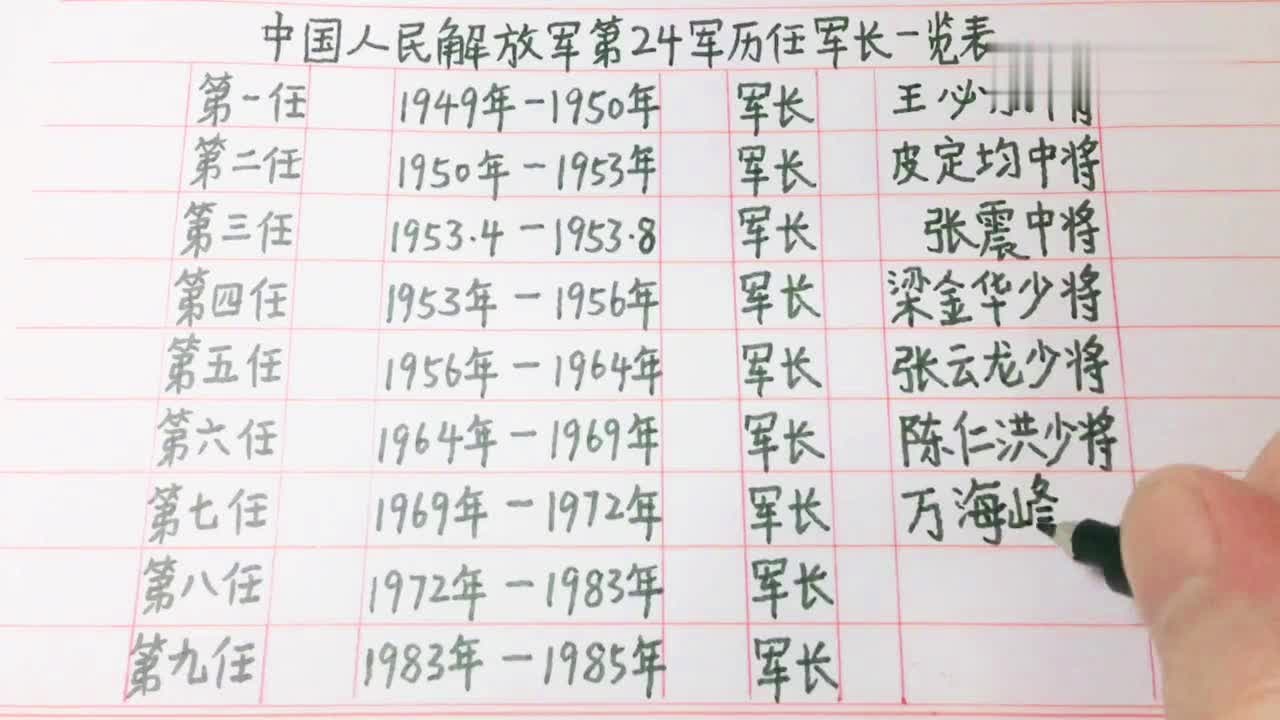 中国人民解放军第24军历任军长一览表
第一任 1949年-1950年 军长 王必
第二任 1950年-1953年 军长 皮定均中将
第三任 1953.4-1953.8 军长 张震中将
第四任 1953年-1956年 军长 梁金华少将
第五任 1956年-1964年 军长 张云龙少将
第六任 1964年-1969年 军长 陈仁洪少将
第七任 1969年-1972年 军长 万海峰
第八任 1972年-1983年 军长
第九任 1983年-1985年 军长